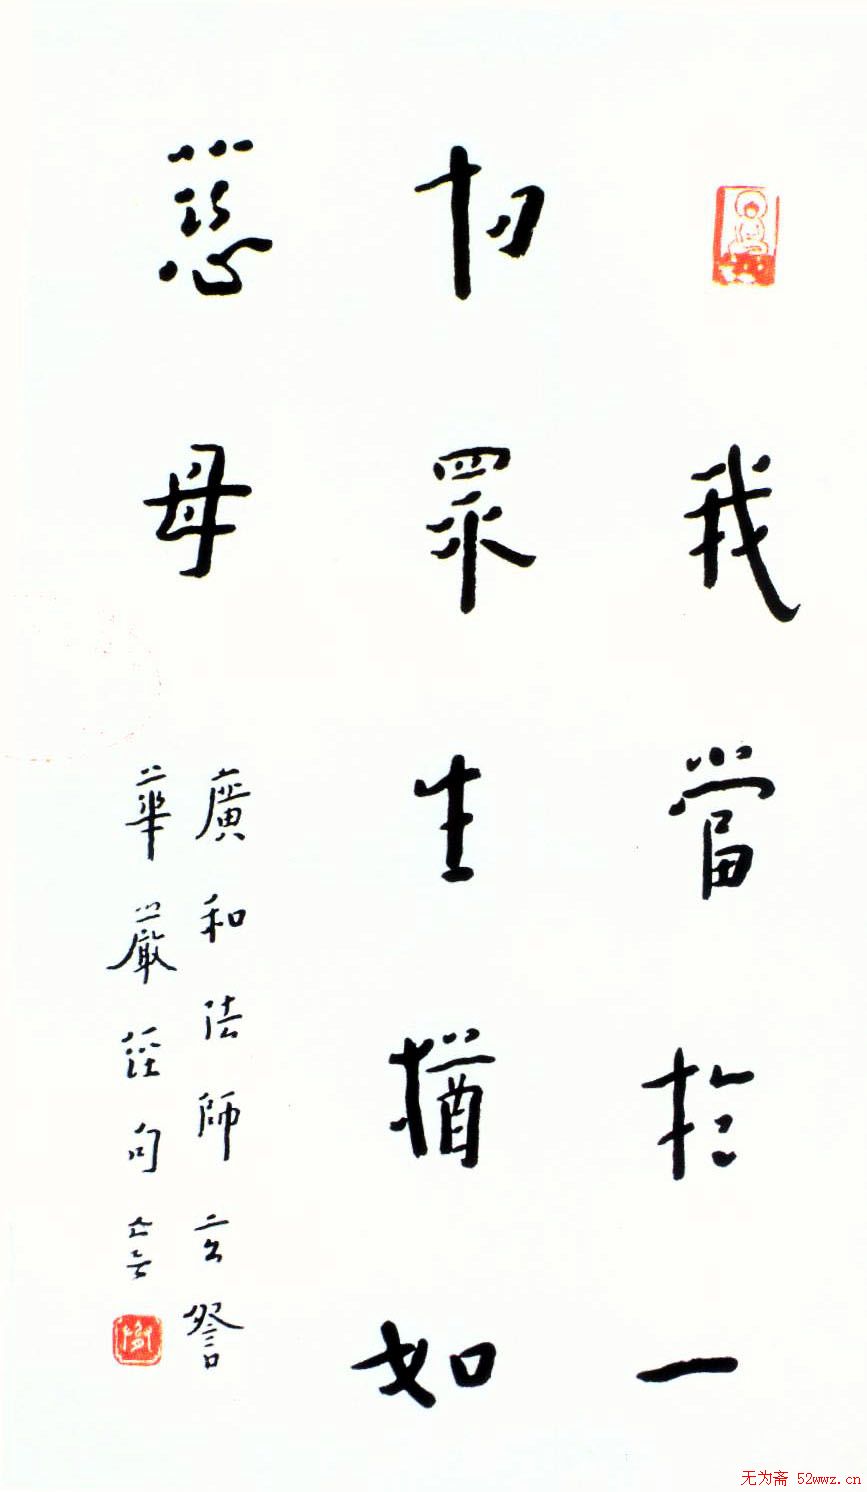 我當於一
切眾生猶如
慈母
廣和法師玄詧
華嚴經句
无为斋 52wwz.cn